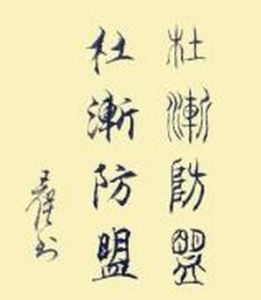 杜漸防盟
杜漸防盟